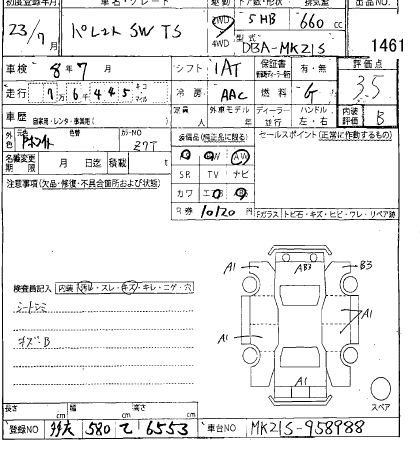 初度登録年月 車名・グレード 駆動 ドア数・形状 排気量 出品NO.
23/7月 パレット SW TS 2WD 4WD 5 HB 660 cc
型式 DBA-MK21S 1461
車検 8年7月 シフト IAT 保証書 有・無 評価点
走行 7万6千445キロ マイル 冷房 AAC 燃料 G 3.5
車歴 自家用・レンタ・事業用( ) 定員 人 外車モデル 年 ディーラー 行 ハンドル 左・右 内装評価 B
外色 元色 色替 カラーNO Z7T 装備品(純正品に限る) セールスポイント(正常に作動するもの)
名義変更期限 月 日迄 積載 t AW
SR TV ナビ
注意事項(欠品・修復・不具合箇所および状態) カワ
R券 10120円 Fガラス トビ石・キズ・ヒビ・ワレ・リペア跡
A1 AB3 B3
検査員記入 内装 汚れ・スレ・キズ・キレ・コゲ・穴
シートシミ
キズB A1 A1
A1
長さ cm 幅 cm 高さ cm スペア
登録NO 580 て 6553 車台NO MK21S-958988